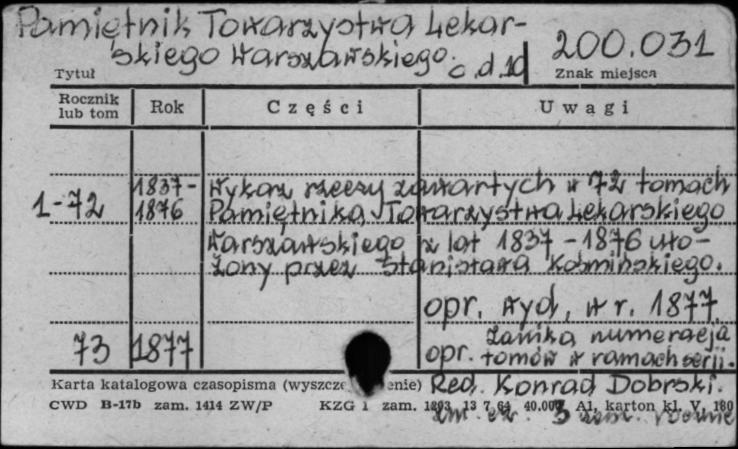 Pamiętnik Towarzystwa Lekar-
skiego Warszawskiego. c.d. 10
200.031
Tytuł
Znak miejsca
Rocznik
lub tom
Rok
Części
Uwagi
1-72
1837-
1876
Wykaz rzeczy zawartych w 72 tomach
Pamiętnika Towarzystwa Lekarskiego
Warszawskiego z lat 1837-1876 uło-
żony przez Stanisława Kośmińskiego.
opr. wyd. w r. 1877.
73
1877
opr.
Zanika numeracja
tomów w ramach serji.
Red. Konrad Dobrski.
Karta katalogowa czasopisma
CWD B-17b zam. 1414 ZW/P
KZG 1 zam. 1203 13 7 64 40.000 A1, karton kl. V, 180